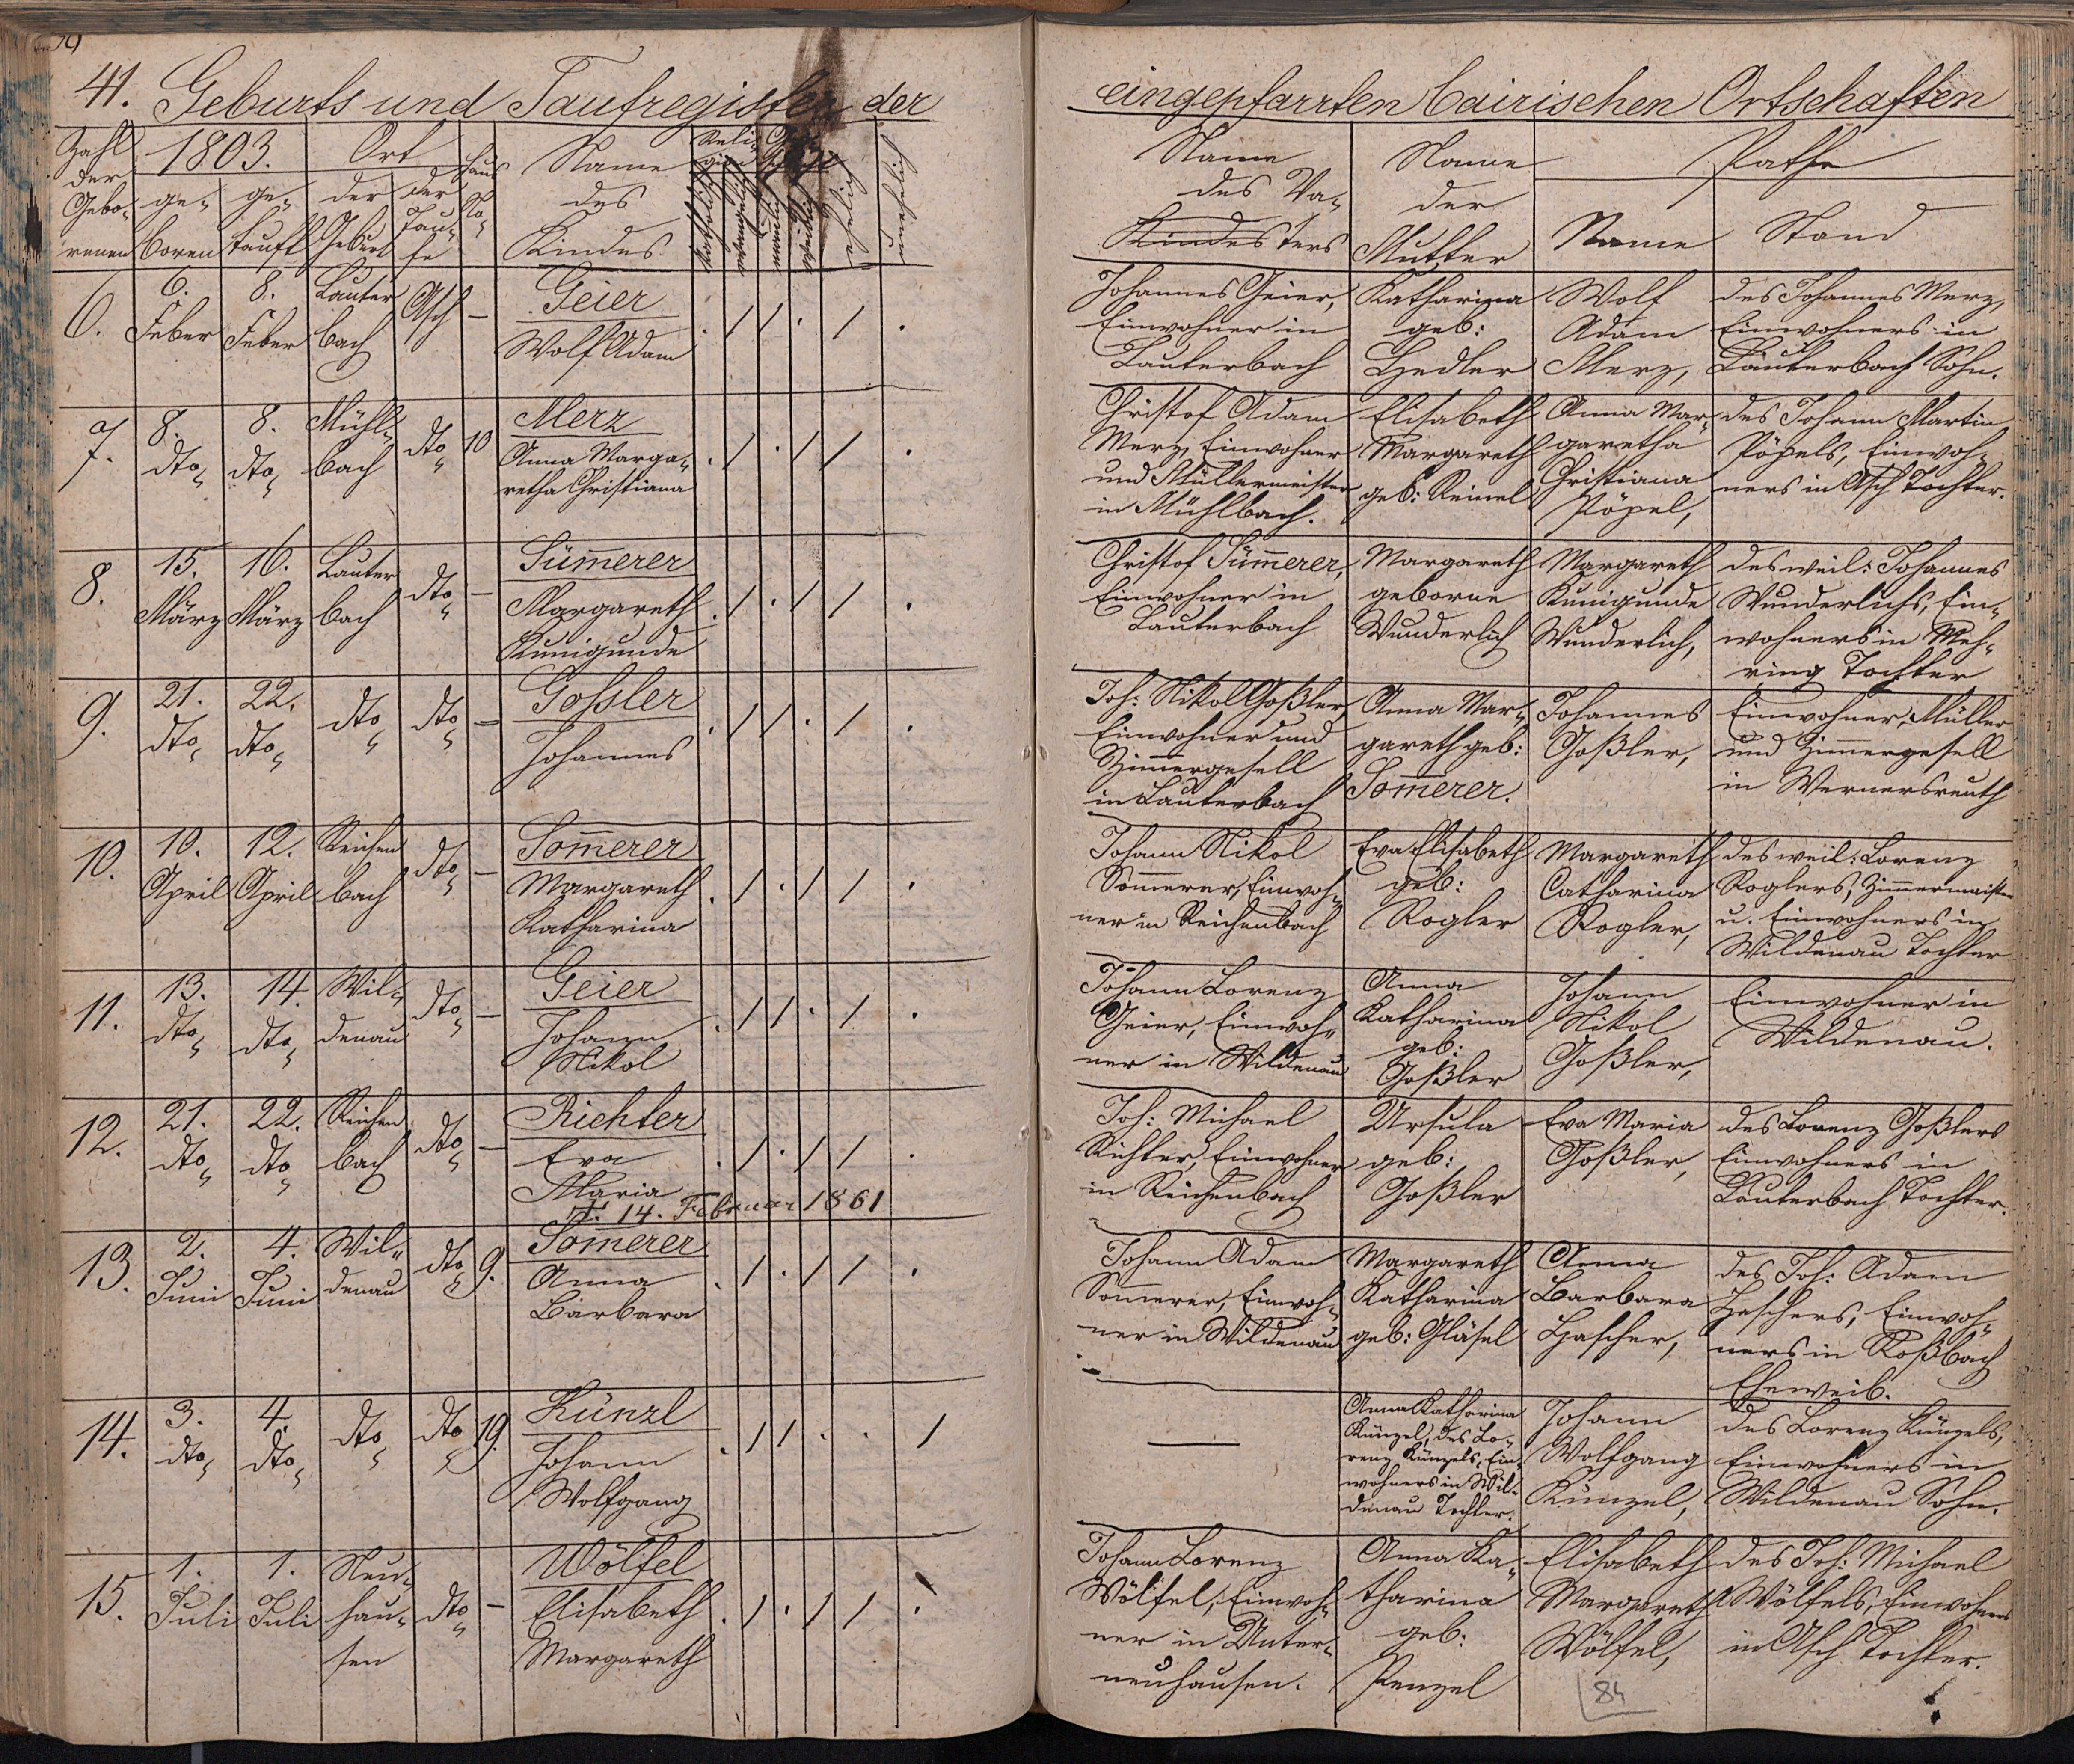 41. Geburts und Taufregister der
eingepfarrten bairischen Ortschaften
Zahl der Gebo- renen
1803.
ge- boren
ge- tauft
Ort
der Geburt
der Tau- fe
Haus No-
Name des Kindes
Reli- gion
katholisch
evangelisch
männlich
weiblich
ehelich
unehelich
Name des Va- Kindes ters
Name der Mutter
Pathe
Name
Stand
6.
6. Feber
8. Feber
Lauter bach
Asch
–
Geier
Wolf Adam
. / / . / .
Johannes Geier,
Einwohner in
Lauterbach
Katharina
geb:
Hedler
Wolf
Adam
Merz,
des Johannes Merz,
Einwohners in
Lauterbach Sohn.
7.
8. dto
8. dto
Mühl- bach
dto
10
Merz
Anna Marga-
retha Christiana
. / . / / .
Christof Adam
Merz, Einwohner
und Müllermeister
in Mühlbach.
Elisabeth
Margareth
geb: Reinel
Anna Mar-
garetha
Christiana
Pöpel,
des Johann Martin
Pöpels, Einwoh-
ners in Asch Tochter.
8.
15. März
16. März
Lauter bach
dto
–
Sümerer
Margareth
Kunigunde
. / . / / .
Christof Sümerer,
Einwohner in
Lauterbach
Margareth
geborne
Wunderlich
Margareth
Kunigunde
Wunderlich,
des weil: Johannes
Wunderlichs, Ein-
wohners in Meh-
ring Tochter
9.
21. dto
22. dto
dto
dto
–
Gossler
Johannes
. / / . / .
Joh: Nikol Goßler,
Einwohner und
Zimergesell
in Lauterbach
Anna Mar-
gareth geb:
Somerer.
Johannes
Goßler,
Einwohner, Müller
und Zimergesell
in Wernersreuth
10.
10. April
12. April
Reichen bach
dto
–
Somerer
Margareth
Katharina
. / . / / .
Johann Nikol
Somerer, Einwoh-
ner in Reichenbach
Eva Elisabeth
geb:
Rogler
Margareth
Catharina
Rogler,
des weil: Lorenz
Roglers, Zimmermeister
u. Einwohners in
Wildenau Tochter
11.
13. dto
14. dto
Wil- denau
dto
–
Geier
Johann
Nikol
. / / . / .
Johann Lorenz
Geier, Einwoh-
ner in Wildenau
Anna
Katharina
geb:
Goßler
Johann
Nikol
Goßler,
Einwohner in
Wildenau.
12.
21. dto
22. dto
Reichen bach
dto
–
Richter
Eva
Maria
†. 14. Februar 1861
. / . / / .
Joh: Michael
Richter, Einwohner
in Reichenbach
Ursula
geb:
Goßler
Eva Maria
Goßler,
des Lorenz Goßlers
Einwohners in
Lauterbach Tochter.
13.
2. Juni
4. Juni
Wil- denau
dto
9.
Somerer
Anna
Barbara
. / . / / .
Johann Adam
Somerer, Einwoh-
ner in Wildenau
Margareth
Katharina
geb: Gläsel
Anna
Barbara
Hascher,
des Joh: Adam
Haschers, Einwoh-
ners in Roßbach
Eheweib.
14.
3. dto
4. dto
dto
dto
19.
Künzl
Johann
Wolfgang
. / / . . /
—
Anna Katharina
Künzel, des Lo-
renz Künzels, Ein-
wohners in Wil-
denau Tochter.
Johann
Wolfgang
Künzel,
des Lorenz Künzels,
Einwohners in
Wildenau Sohn.
15.
1. Juli
1. Juli
Neu- hau- sen
dto
–
Wölfel
Elisabeth
Margareth
. / . / / .
Johann Lorenz
Wölfel, Einwoh-
ner in Unter-
neuhausen.
Anna Ka-
tharina
geb:
Penzel
Elisabeth
Margareth
Wölfel,
des Joh: Michael
Wölfels, Einwohners
in Asch Tochter.
84